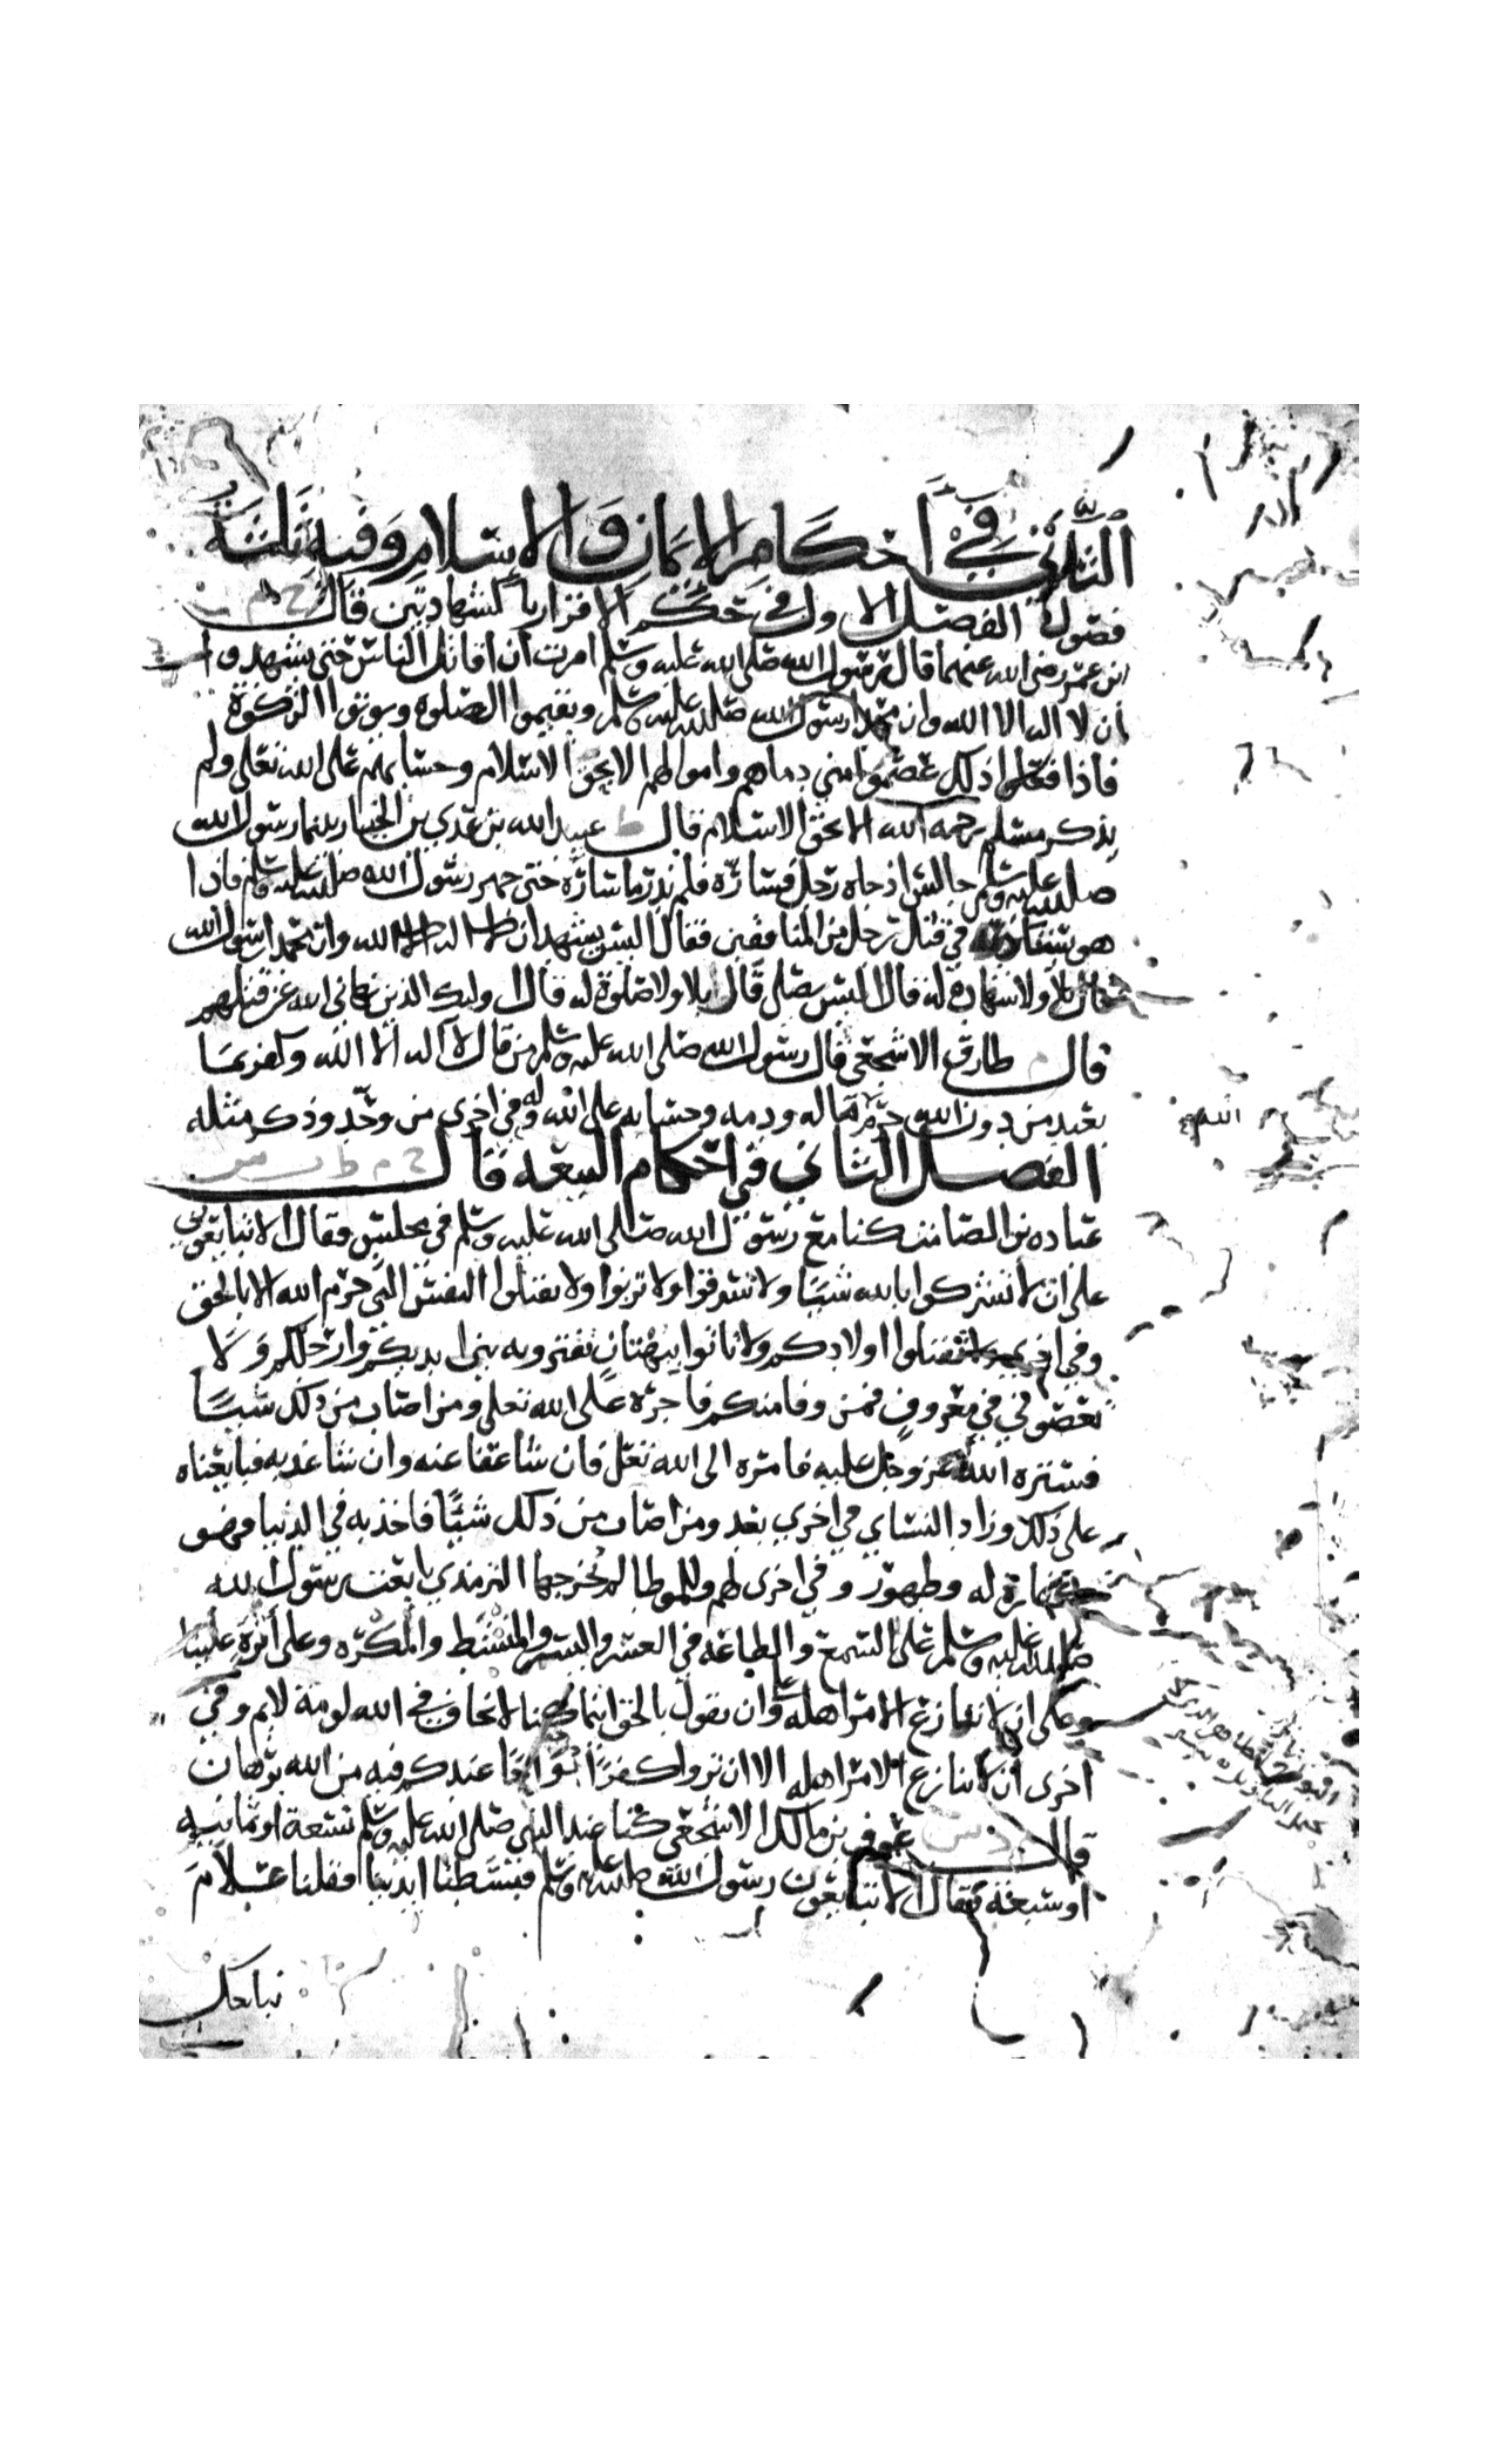 الثاني في احكام الايمان والاسلام وفيه ثلثة
فصول الفصل الاول في حكم الاقرار بالشهادتين قال خ م
ابن عمر رضى الله عنهما قال رسول الله صلى الله عليه وسلم امرت ان اقاتل الناس حتى يشهدوا
ان لا اله الا الله وان محمدا رسول الله صلى الله عليه وسلم ويقيموا الصلوة ويوتوا الزكوة
فاذا فعلوا ذلك عصموا مني دماهم واموالهم الا بحق الاسلام وحسابهم على الله تعلى ولم
يذكر مسلم رحمه الله الا بحق الاسلام قال ط عبيد الله بن عدي بن الخيار بينما رسول الله
صلى الله عليه وسلم جالس اذ جاه رجل فساره فلم ندر ما ساره حتى جهر رسول الله صلى الله عليه وسلم فاذا
هو في قتل رجل من المنافقين فقال اليس يشهد ان لا اله الا الله وان محمدا رسول الله
قال بلا ولا شهادة له قال اليس يصلى قال بلا ولا صلوة له قال اوليك الذين نهاني الله عن قتلهم
قال م طارق الاشجعي قال رسول الله صلى الله عليه وسلم من قال لا اله الا الله وكفر بما
يعبد من دون الله حرم ماله ودمه وحسابه على الله وفي اخرى من وحد وذكر مثله
الفصل الثاني في احكام البيعه قال خ م ط ت س
عباده بن الصامت كنا مع رسول الله صلى الله عليه وسلم في مجلس فقال الا تبايعوني
على ان لا تشركوا بالله شيا ولا تسرقوا ولا تزنوا ولا تقتلوا النفس التي حرم الله الا بالحق
وفي اخرى ولا تقتلوا اولادكم ولا تاتوا ببهتان تفترونه بين ايديكم وارجلكم ولا
تعصوني في معروف فمن وفا منكم فاجره على الله تعلى ومن اصاب من ذلك شيا
فستره الله عز وجل عليه فامره الى الله تعلى فان شا عفا عنه وان شا عذبه فبايعناه
على ذلك وزاد النساي في اخرى بعد ومن اصاب من ذلك شيئا فاخذ به في الدنيا فهو
كفارة له وطهور وفي اخرى لهم وللموطا لم يخرجها الترمذي بايعت رسول الله
صلى الله عليه وسلم على السمع والطاعه في العسر واليسر والمنشط والمكره وعلى اثرة علينا
وعلى ان لا ننازع الامر اهله وان نقول بالحق اينما كنا لا نخاف في الله لومة لايم وفي
اخرى ان لا ننازع الامر اهله الا ان تروا كفرا بواحا عندكم فيه من الله برهان
قال م د س عوف بن مالك الاشجعي كنا عند النبي صلى الله عليه وسلم تسعة او ثمانيه
او سبعة فقال الا تبايعون رسول الله صلى الله عليه وسلم فبسطنا ايدينا فقلنا علام
نبايعك